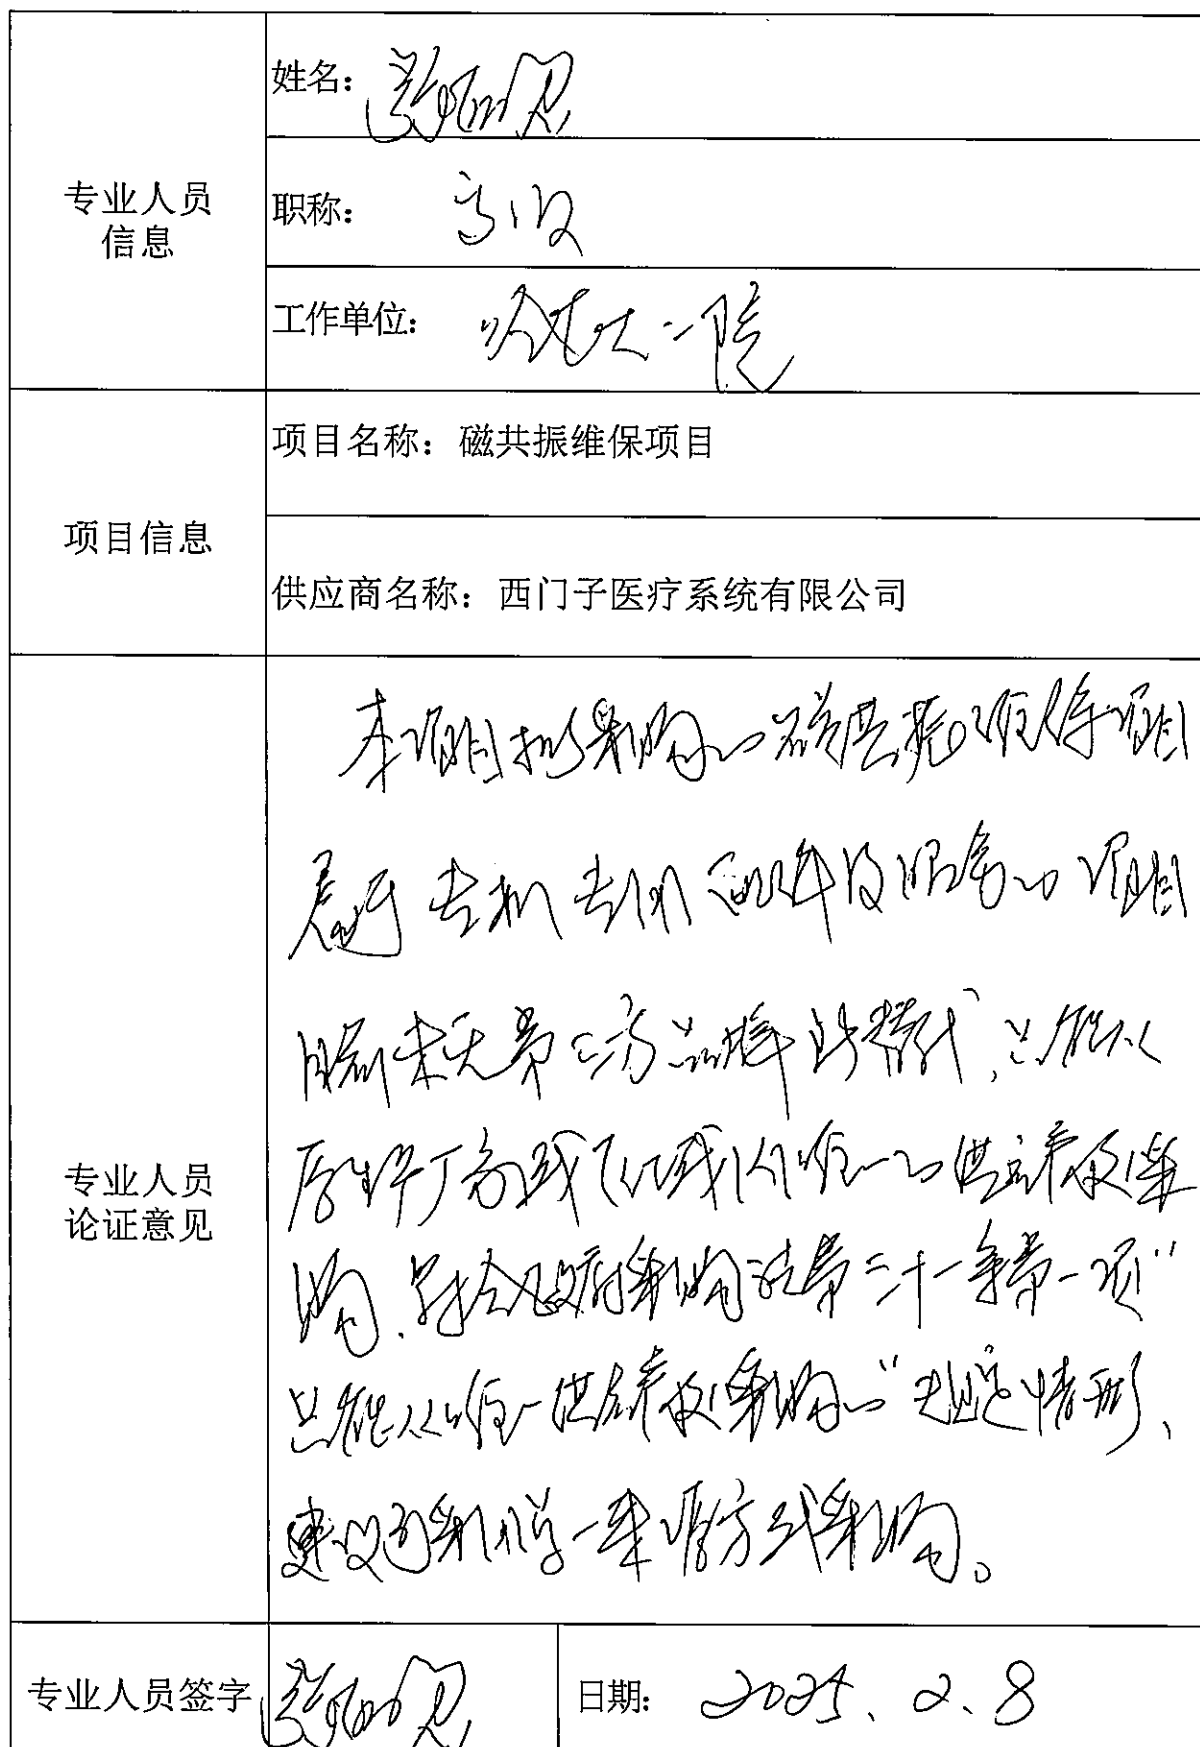 专业人员
信息
姓名：
职称：
工作单位： 一院
项目信息
项目名称：磁共振维保项目
供应商名称：西门子医疗系统有限公司
专业人员
论证意见
本项目拟采购的磁共振维保项目
属于专机专用配件及服务的项目
目前来无第三方品牌 替代、只能从
原生产厂商或 区域内唯一的供应商处采
购、符合政府采购法第三十一条第一项“
只能从唯一供应商处采购的” 情形、
建议 采用单一来源方式采购。
专业人员签字
日期： 2025.2.8